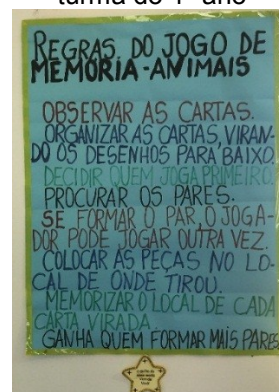 turma do 1º ano
REGRAS DO JOGO DE
MEMÓRIA-ANIMAIS
OBSERVAR AS CARTAS.
ORGANIZAR AS CARTAS, VIRAN
DO OS DESENHOS PARA BAIXO.
DECIDIR QUEM JOGA PRIMEIRO.
PROCURAR OS PARES.
SE FORMAR O PAR, O JOGA-
DOR PODE JOGAR OUTRA VEZ.
COLOCAR AS PEÇAS NO LO-
CAL DE ONDE TIROU.
MEMORIZAR O LOCAL DE CADA
CARTA VIRADA.
GANHA QUEM FORMAR MAIS PARES